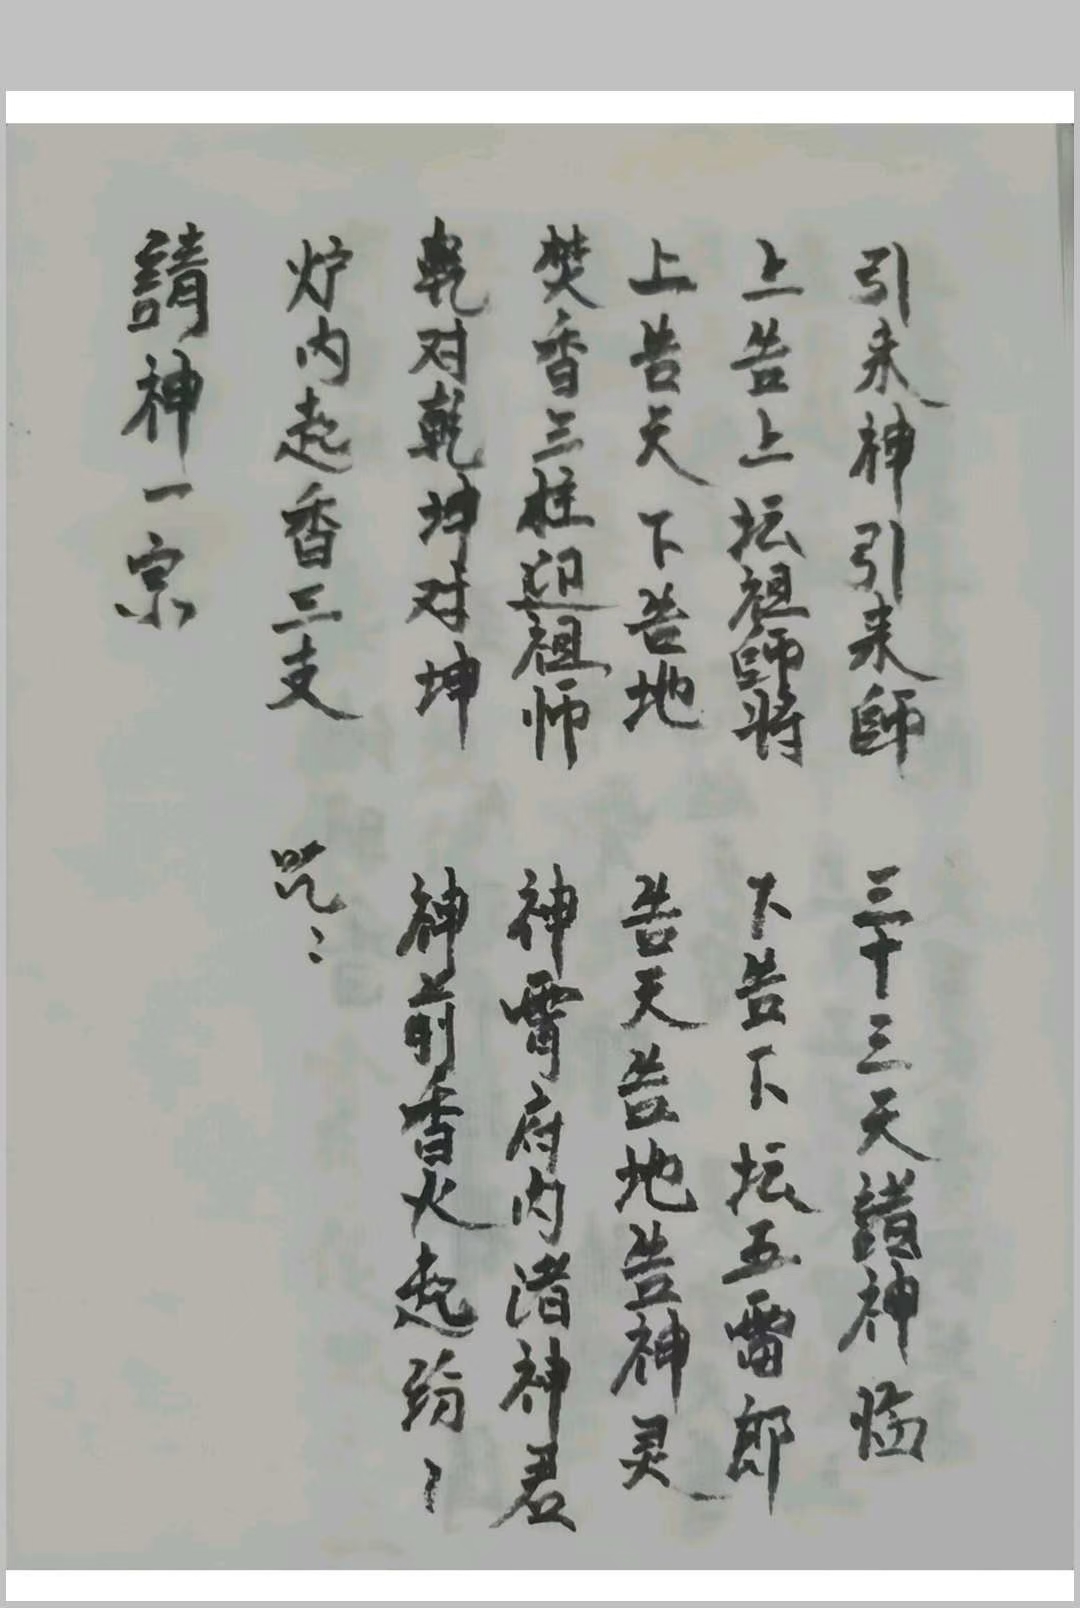 請神一宗
炉内起香三支 咒：
乾对乾坤对坤 神前香火起纷〻
焚香三柱迎祖师 神霄府内渚神君
上告天下告地 告天告地告神灵
上告上坛祖師将 下告下坛五雷郎
引来神引来師 三十三天諸神临